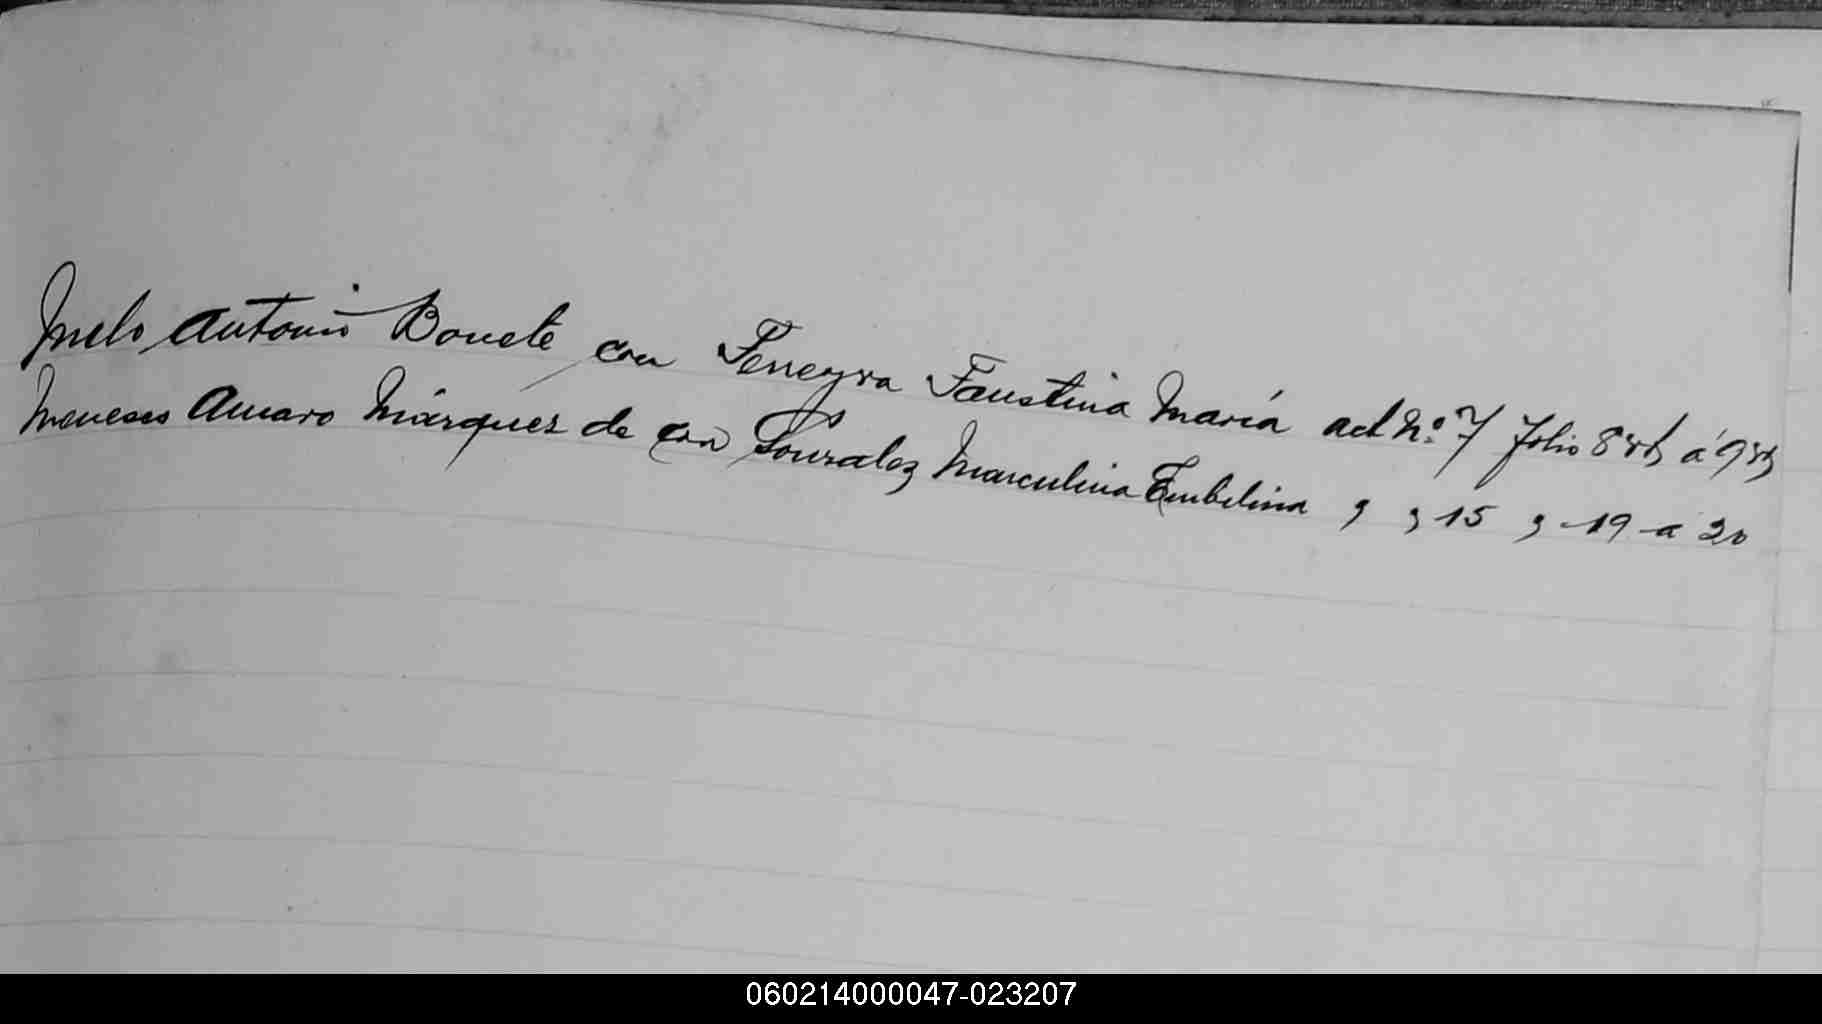 Melo Antonio Bonete con Ferreyra Faustina María act Nº 7 folio 8 vta á 9 vta
Meneses Amaro Márquez de con Gonzalez Marculina Embelina " " 15 " 19 a 20
060214000047-023207